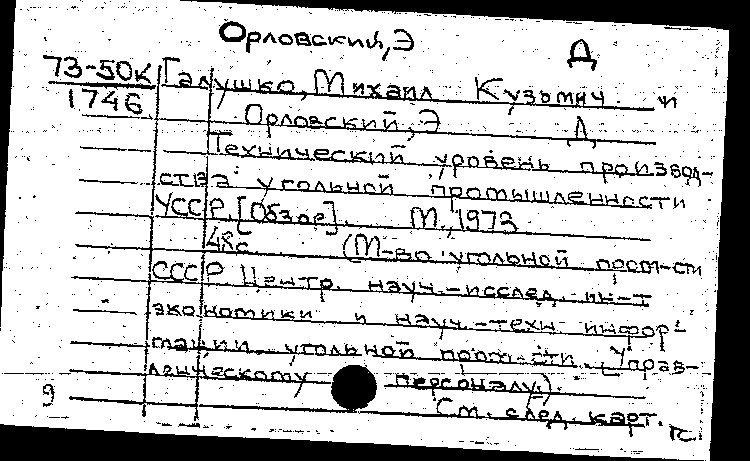 Орловский, Э Д
73-50к Галушко, Михаил Кузьмич и
1746 Орловский, Э Д.
Технический уровень производ-
ства угольной промышленности
УССР. [Обзор]. М., 1973
48с (М-во угольной пром-сти
СССР. Центр. науч.-исслед. ин-т
экономики и науч.-техн. инфор-
мации угольной пром-сти. Управ-
ленческому персоналу.).
9 См. след. карт.